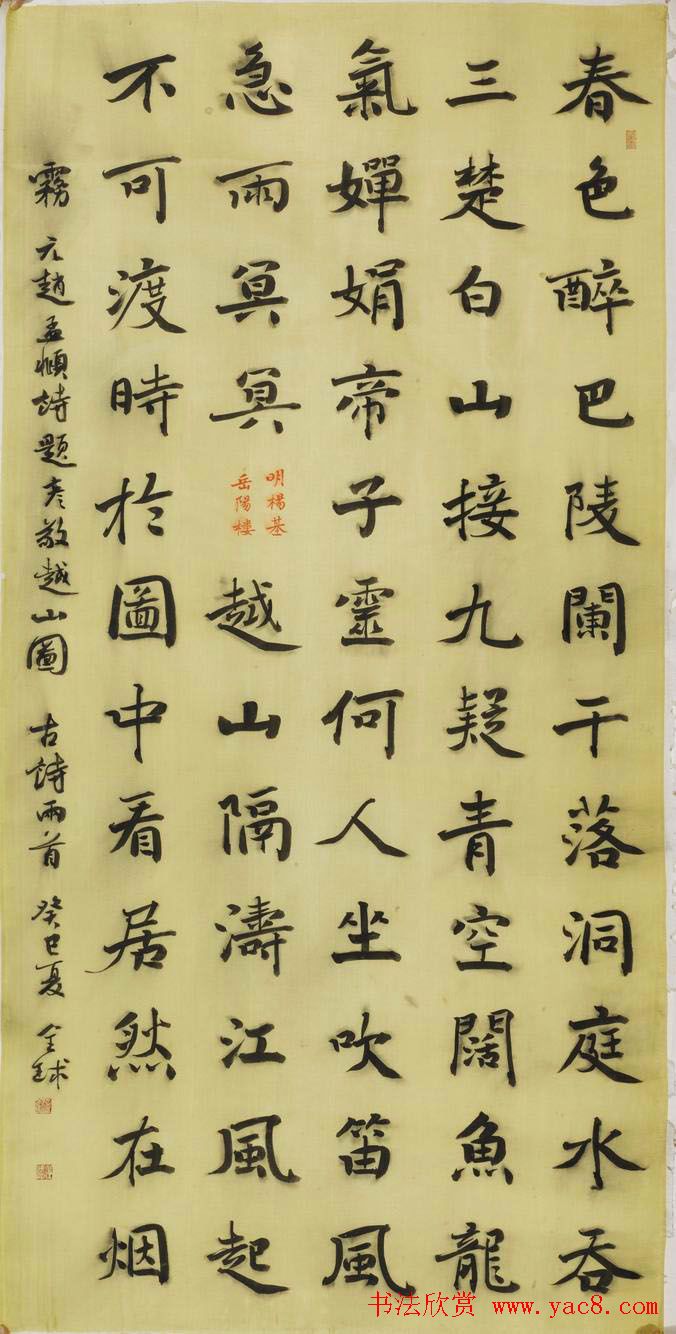 春色醉巴陵闌干落洞庭水吞
三楚白山接九疑青空闊魚龍
氣嬋娟帝子靈何人坐吹笛風
急雨冥冥
明楊基
岳陽樓
越山隔濤江風起
不可渡時於圖中看居然在烟
霧 元趙孟頫詩題李敬越山圖 古詩兩首 癸巳夏 全球
书法欣赏 www.yac8.com